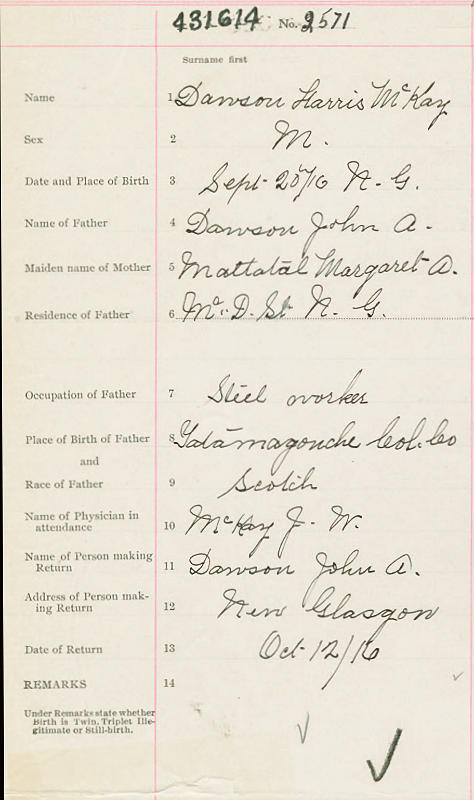 431614 No. 2571
Surname first
Name 1 Dawson Harris McKay
Sex 2 M.
Date and Place of Birth 3 Sept 20/16 N. G.
Name of Father 4 Dawson John A.
Maiden name of Mother 5 Mattatal Margaret A.
Residence of Father 6 McD. St N. G.
Occupation of Father 7 Steel worker
Place of Birth of Father 8 Tatamagouche Col. Co
and
Race of Father 9 Scotch
Name of Physician in
attendance 10 McKay J. W.
Name of Person making
Return 11 Dawson John A.
Address of Person mak-
ing Return 12 New Glasgow
Date of Return 13 Oct 12/16
REMARKS 14
Under Remarks state whether
Birth is Twin, Triplet Ille-
gitimate or Still-birth.